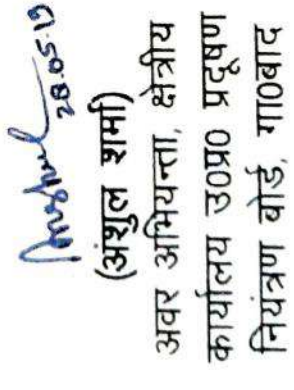 Anshul
28.05.19
(अंशुल शर्मा)
अवर अभियन्ता, क्षेत्रीय
कार्यालय उ०प्र० प्रदूषण
नियंत्रण बोर्ड, गा०बाद